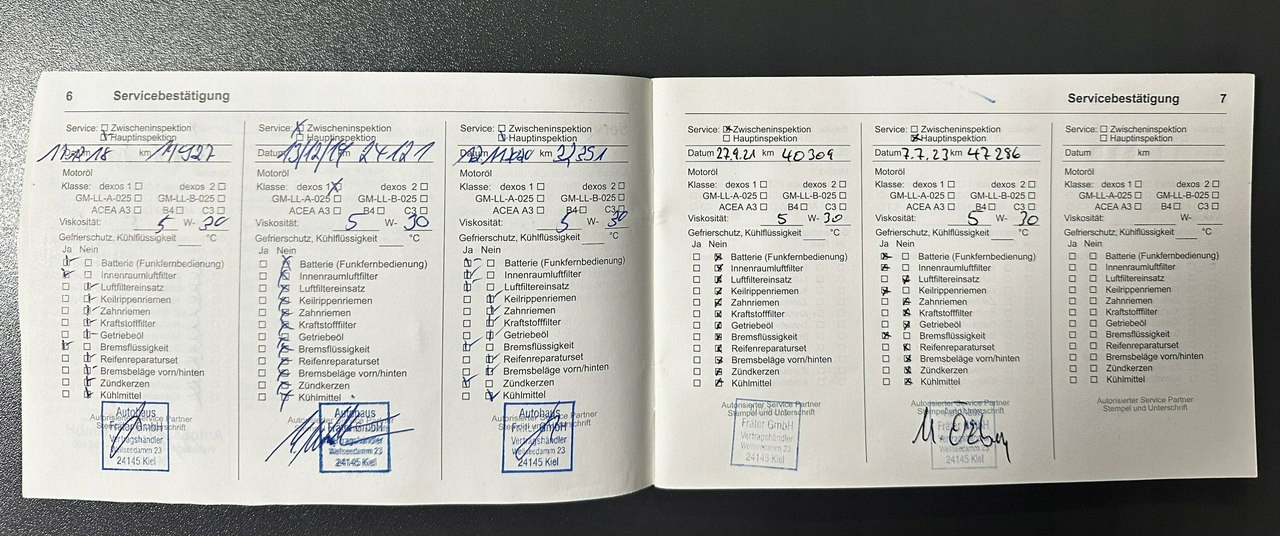 6 Servicebestätigung
Service: Zwischeninspektion
Hauptinspektion
Datum km
Motoröl
Klasse: dexos 1 dexos 2
GM-LL-A-025 GM-LL-B-025
ACEA A3 B4 C3
Viskosität: 5 W- 30
Gefrierschutz, Kühlflüssigkeit °C
Ja Nein
Batterie (Funkfernbedienung)
Innenraumluftfilter
Luftfiltereinsatz
Keilrippenriemen
Zahnriemen
Kraftstofffilter
Getriebeöl
Bremsflüssigkeit
Reifenreparaturset
Bremsbeläge vorn/hinten
Zündkerzen
Kühlmittel
Autorisierter Service Partner
Stempel und Unterschrift
Autohaus
Fräter GmbH
Vertragshändler
24145 Kiel
Service: Zwischeninspektion
Hauptinspektion
Datum 13/12/19 km 24121
Motoröl
Klasse: dexos 1 dexos 2
GM-LL-A-025 GM-LL-B-025
ACEA A3 B4 C3
Viskosität: 5 W- 30
Gefrierschutz, Kühlflüssigkeit °C
Ja Nein
Batterie (Funkfernbedienung)
Innenraumluftfilter
Luftfiltereinsatz
Keilrippenriemen
Zahnriemen
Kraftstofffilter
Getriebeöl
Bremsflüssigkeit
Reifenreparaturset
Bremsbeläge vorn/hinten
Zündkerzen
Kühlmittel
Autohaus
Fräter GmbH
Vertragshändler
24145 Kiel
Service: Zwischeninspektion
Hauptinspektion
km
Motoröl
Klasse: dexos 1 dexos 2
GM-LL-A-025 GM-LL-B-025
ACEA A3 B4 C3
Viskosität: 5 W- 30
Gefrierschutz, Kühlflüssigkeit °C
Ja Nein
Batterie (Funkfernbedienung)
Innenraumluftfilter
Luftfiltereinsatz
Keilrippenriemen
Zahnriemen
Kraftstofffilter
Getriebeöl
Bremsflüssigkeit
Reifenreparaturset
Bremsbeläge vorn/hinten
Zündkerzen
Kühlmittel
Autohaus
Vertragshändler
24145 Kiel
Servicebestätigung 7
Service: Zwischeninspektion
Hauptinspektion
Datum 27.9.21 km 40309
Motoröl
Klasse: dexos 1 dexos 2
GM-LL-A-025 GM-LL-B-025
ACEA A3 B4 C3
Viskosität: 5 W- 30
Gefrierschutz, Kühlflüssigkeit °C
Ja Nein
Batterie (Funkfernbedienung)
Innenraumluftfilter
Luftfiltereinsatz
Keilrippenriemen
Zahnriemen
Kraftstofffilter
Getriebeöl
Bremsflüssigkeit
Reifenreparaturset
Bremsbeläge vorn/hinten
Zündkerzen
Kühlmittel
Autorisierter Service Partner
Stempel und Unterschrift
Fräter GmbH
Vertragshändler
24145 Kiel
Service: Zwischeninspektion
Hauptinspektion
Datum 7.7.23 km 47286
Motoröl
Klasse: dexos 1 dexos 2
GM-LL-A-025 GM-LL-B-025
ACEA A3 B4 C3
Viskosität: 5 W- 30
Gefrierschutz, Kühlflüssigkeit °C
Ja Nein
Batterie (Funkfernbedienung)
Innenraumluftfilter
Luftfiltereinsatz
Keilrippenriemen
Zahnriemen
Kraftstofffilter
Getriebeöl
Bremsflüssigkeit
Reifenreparaturset
Bremsbeläge vorn/hinten
Zündkerzen
Kühlmittel
Autorisierter Service Partner
Stempel und Unterschrift
Fräter GmbH
24145 Kiel
Service: Zwischeninspektion
Hauptinspektion
Datum km
Motoröl
Klasse: dexos 1 dexos 2
GM-LL-A-025 GM-LL-B-025
ACEA A3 B4 C3
Viskosität: W-
Gefrierschutz, Kühlflüssigkeit °C
Ja Nein
Batterie (Funkfernbedienung)
Innenraumluftfilter
Luftfiltereinsatz
Keilrippenriemen
Zahnriemen
Kraftstofffilter
Getriebeöl
Bremsflüssigkeit
Reifenreparaturset
Bremsbeläge vorn/hinten
Zündkerzen
Kühlmittel
Autorisierter Service Partner
Stempel und Unterschrift